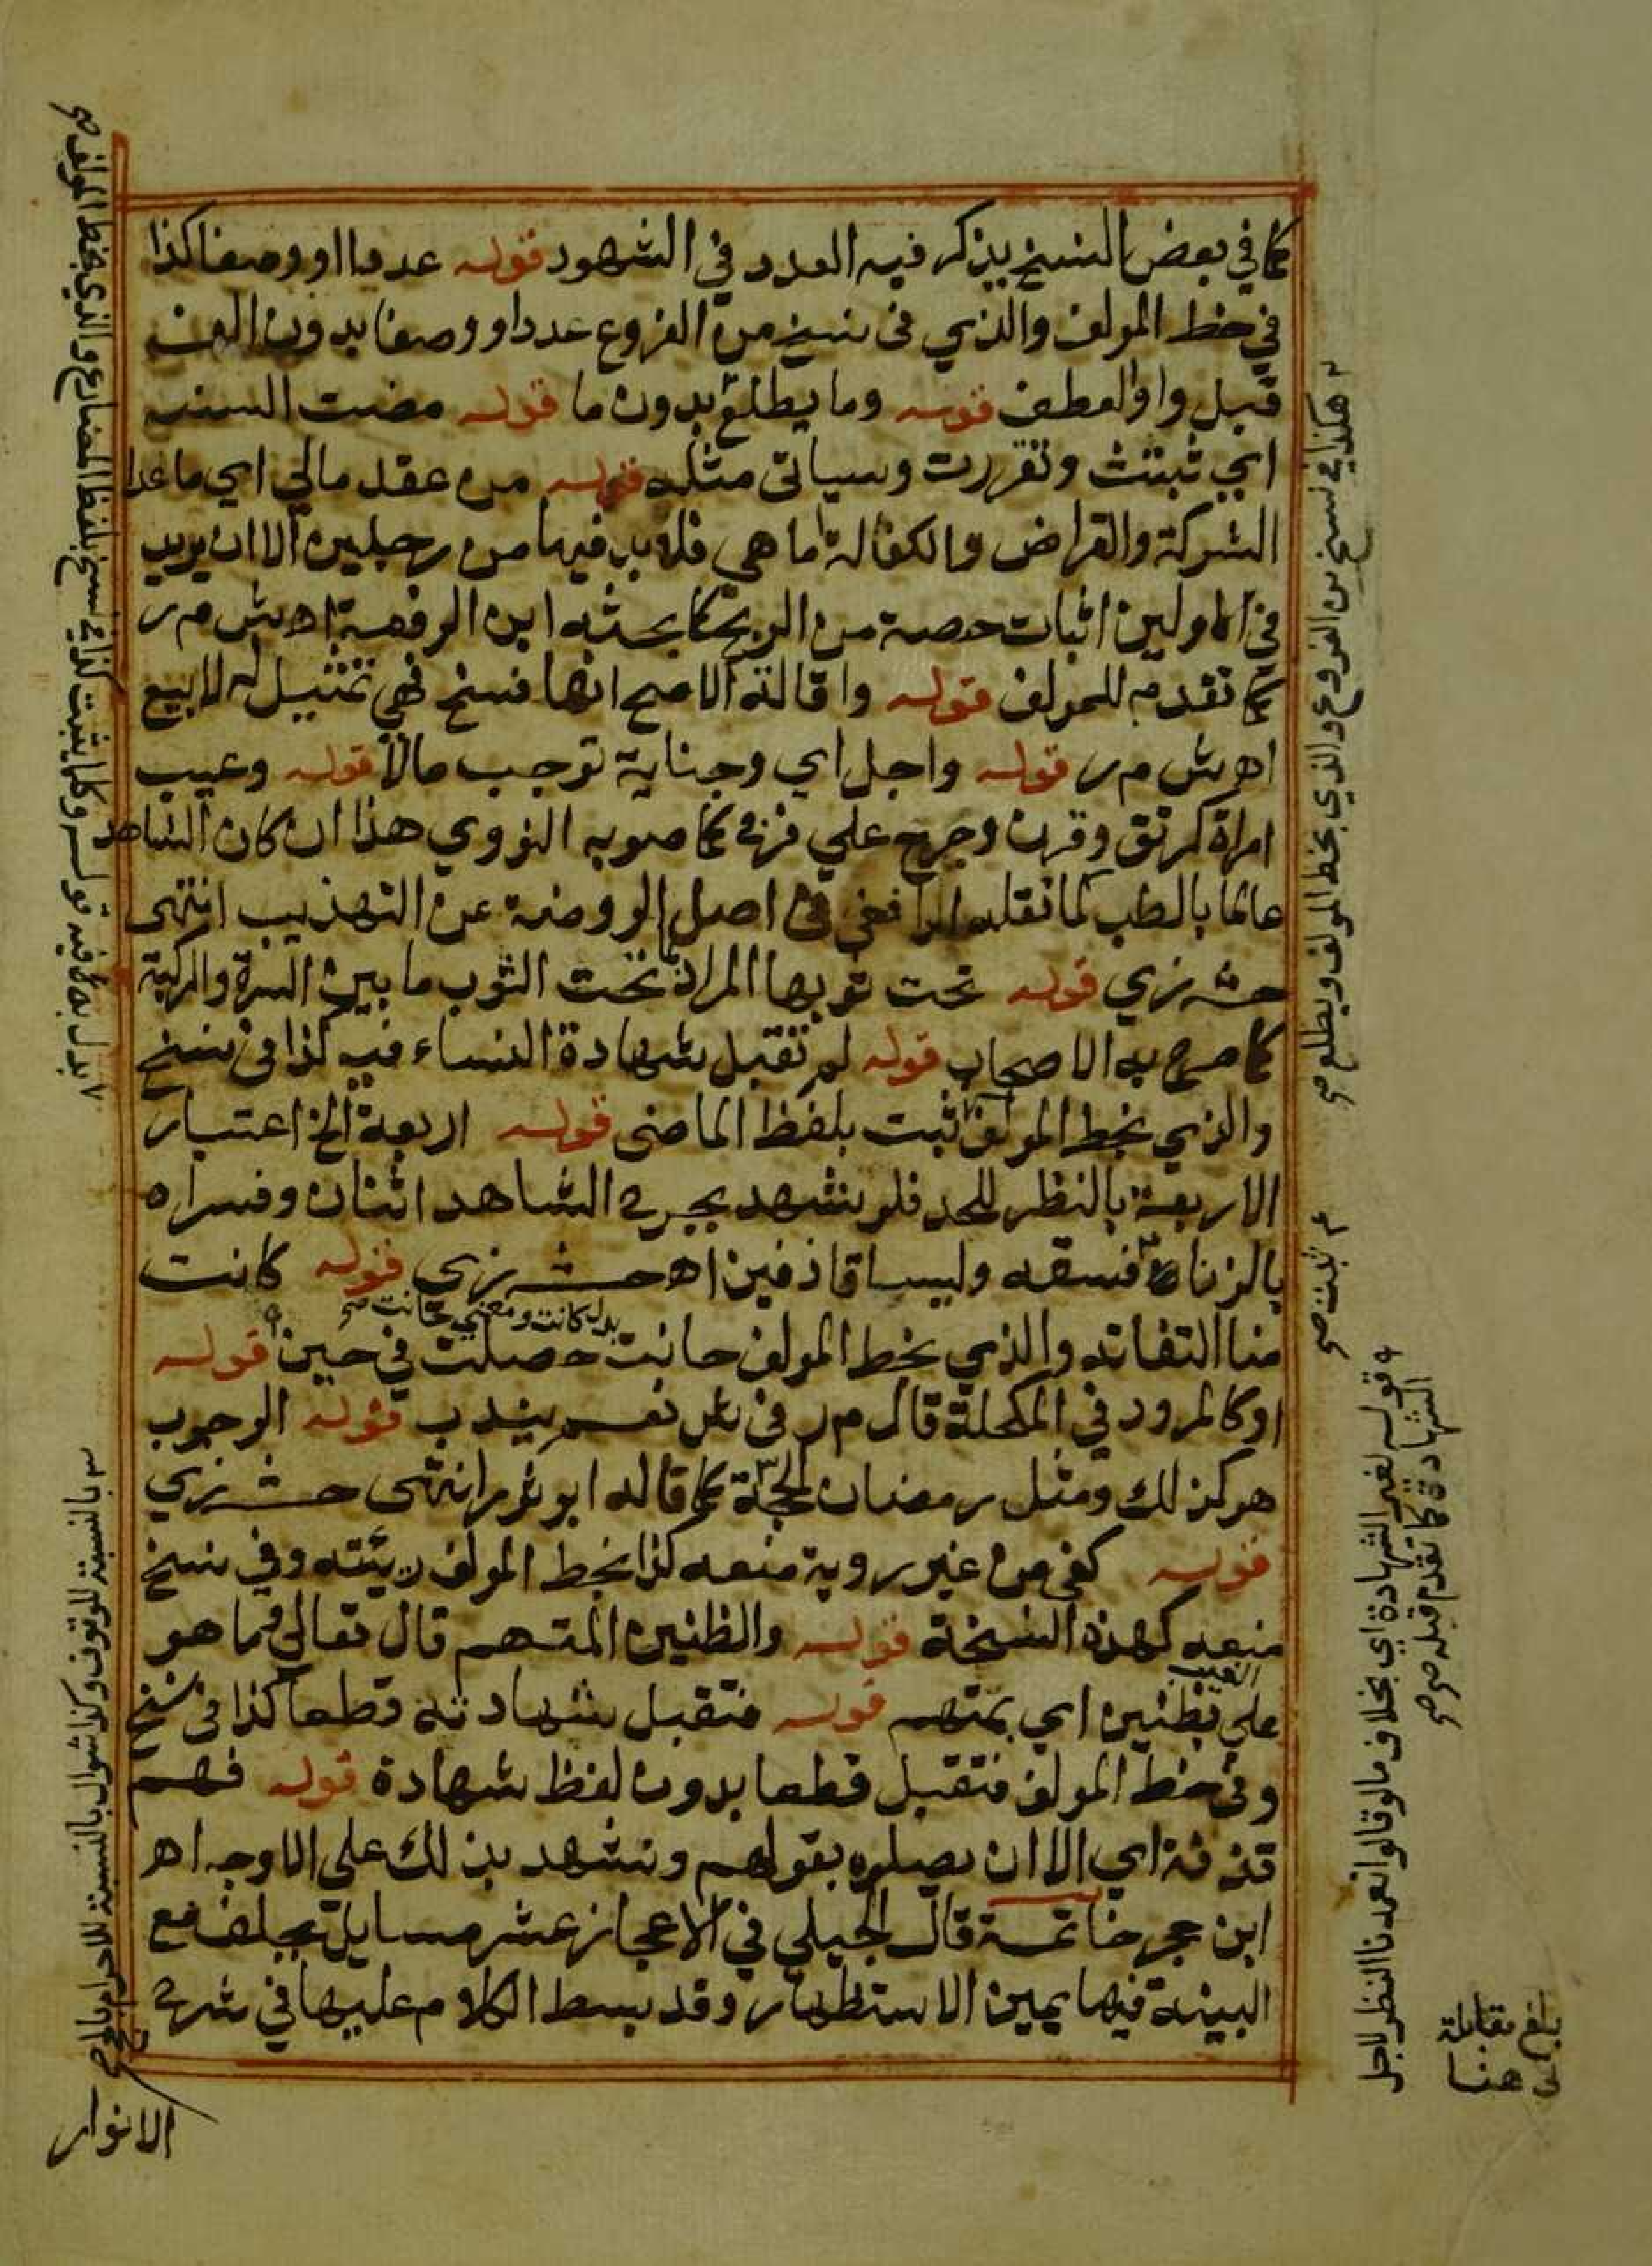 كما في بعض النسخ يذكر فيه العدد في الشهود قوله عددا او وصفا كذا
في خط المولف والذي في نسخ من الفروع عددا ووصفا بدون الف
قبل واو العطف قوله وما يطلع بدون ما قوله مضت السنه
اي ثبتت وتقررت وسياتي مثله قوله من عقد مالي اي ما عدا
الشركة والقراض والكفالة اما هي فلا بد فيها من رجلين الا ان يريد
في الاولين اثبات حصة من الربح كما بحثه ابن الرفعة اهـ ش م ر
كما تقدم للمولف قوله واقالة الاصح انها فسخ فهي تمثيل له لا بيع
اهـ ش م ر قوله واجل اي وجناية توجب مالا قوله وعيب
امراة كرتق وقرن وجرح علي فرج كما صوبه النووي هذا ان كان الشاهد
عالما بالطب كما نقله الرافعي في اصل الروضة عن التهذيب انتهى
حش زي قوله تحت ثوبها المراد تحت الثوب ما بين السرة والركبة
كما صرح به الاصحاب قوله لم تقبل شهادة النساء فيه كذا في نسخ
والذي بخط المولف ثبت بلفظ الماضي قوله اربعة الخ اعتبار
الاربعة بالنظر للحد فلو شهد بجرح الشاهد اثنان وفسراه
بالزنا فسقه وليسا قاذفين اهـ حش زي قوله كانت
بدل كانت ومعنى حانت صح
منا التفاتة والذي بخط المولف حانت حصلت في حين قوله
او كالمرود في المكحلة قال م ر في ش نعم يندب قوله الوجوب
هو كذلك ومثل رمضان الحجة كما قاله ابو انتهى حش زي
قوله كفى من غير روية منعه كذا بخط المولف رئيته وفي نسخ
منعه كهذه النسخة قوله والظنين المتهم قال تعالى وما هو
على الغيب بظنين اي بمتهم قوله فتقبل شهادته قطعا كذا في نسخ
وفي خط المولف فتقبل قطعا بدون لفظ شهادة قوله فهم
قذفة اي الا ان يصلوه بقولهم ونشهد بذلك على الاوجه اهـ
ابن حجر خاتمة قال الجيلي في الاعجاز عشر مسايل يحلف مع
البينة فيها يمين الاستظهار وقد بسط الكلام عليها في شرح
الانوار
هكذا في نسخ من الفروع والذي بخط المولف ويطلع صح
ثبت صح
قوله لغير الشهادة اي بخلاف ما لو قالوا تعمدنا النظر لاجل
الشهادة كما تقدم قبله صح
بلغ مقابلة
الى هنا
بالنسبة للوقوف وكذا شوال بالنسبة للاحرام بالحج